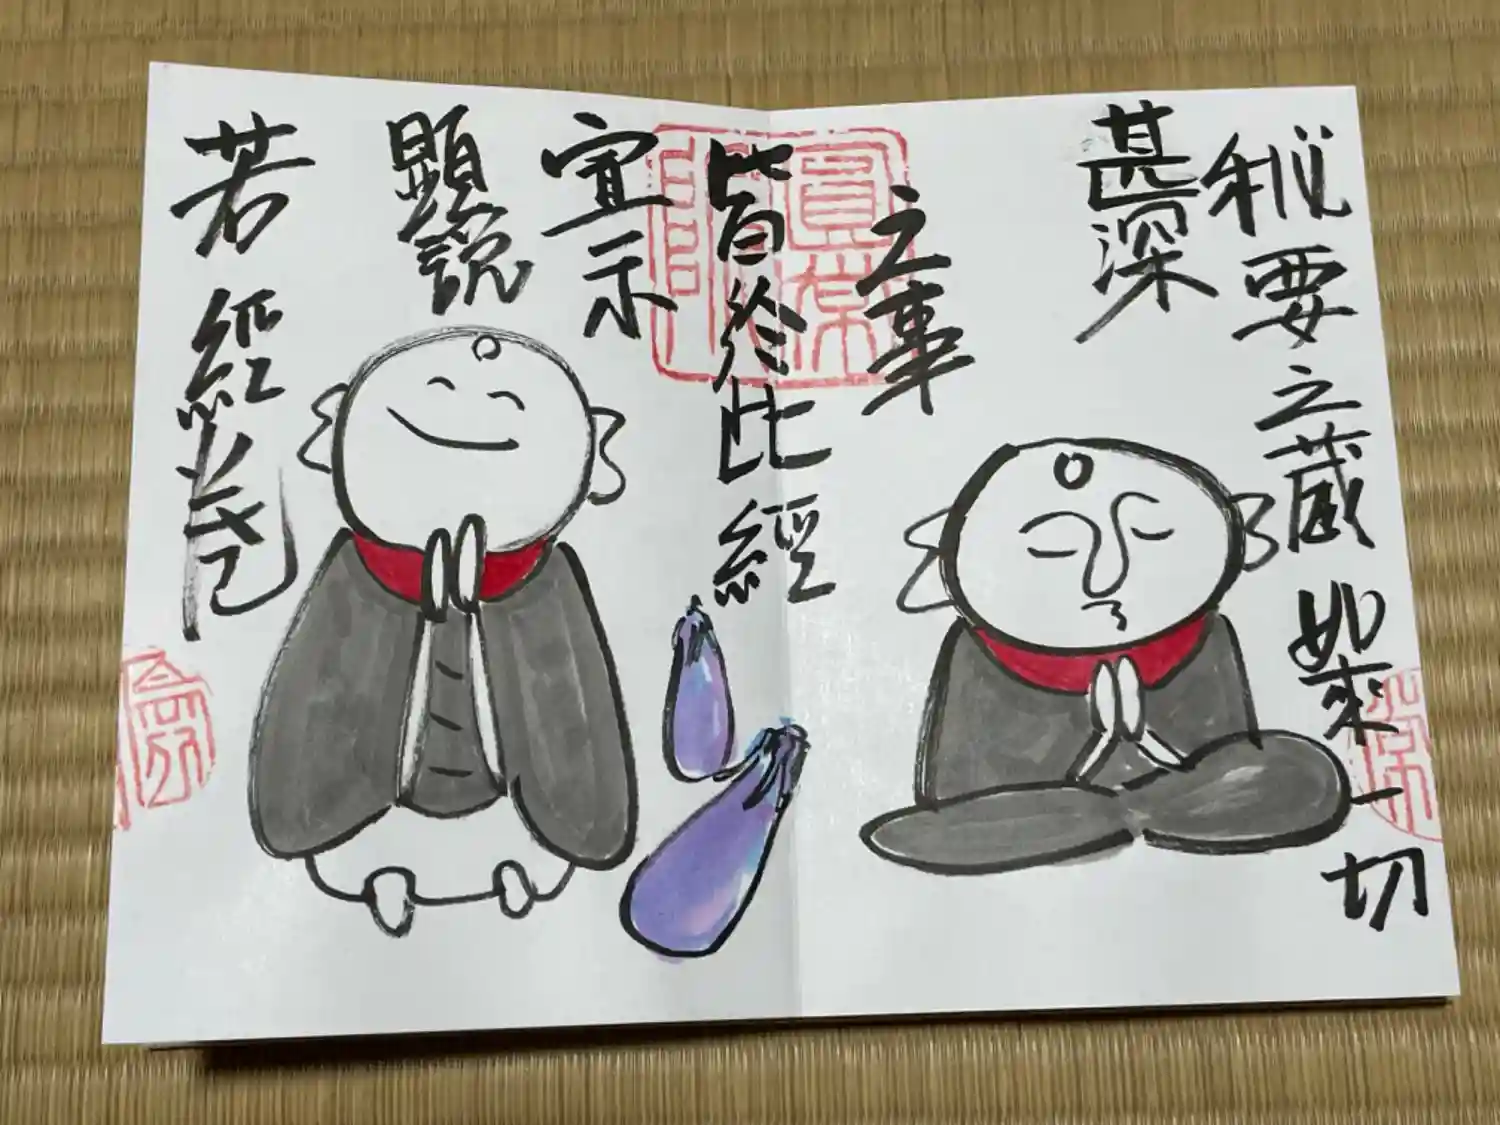 秘要之蔵如來一切
甚深
之事
皆於此經
宣示
顯説
若經巻